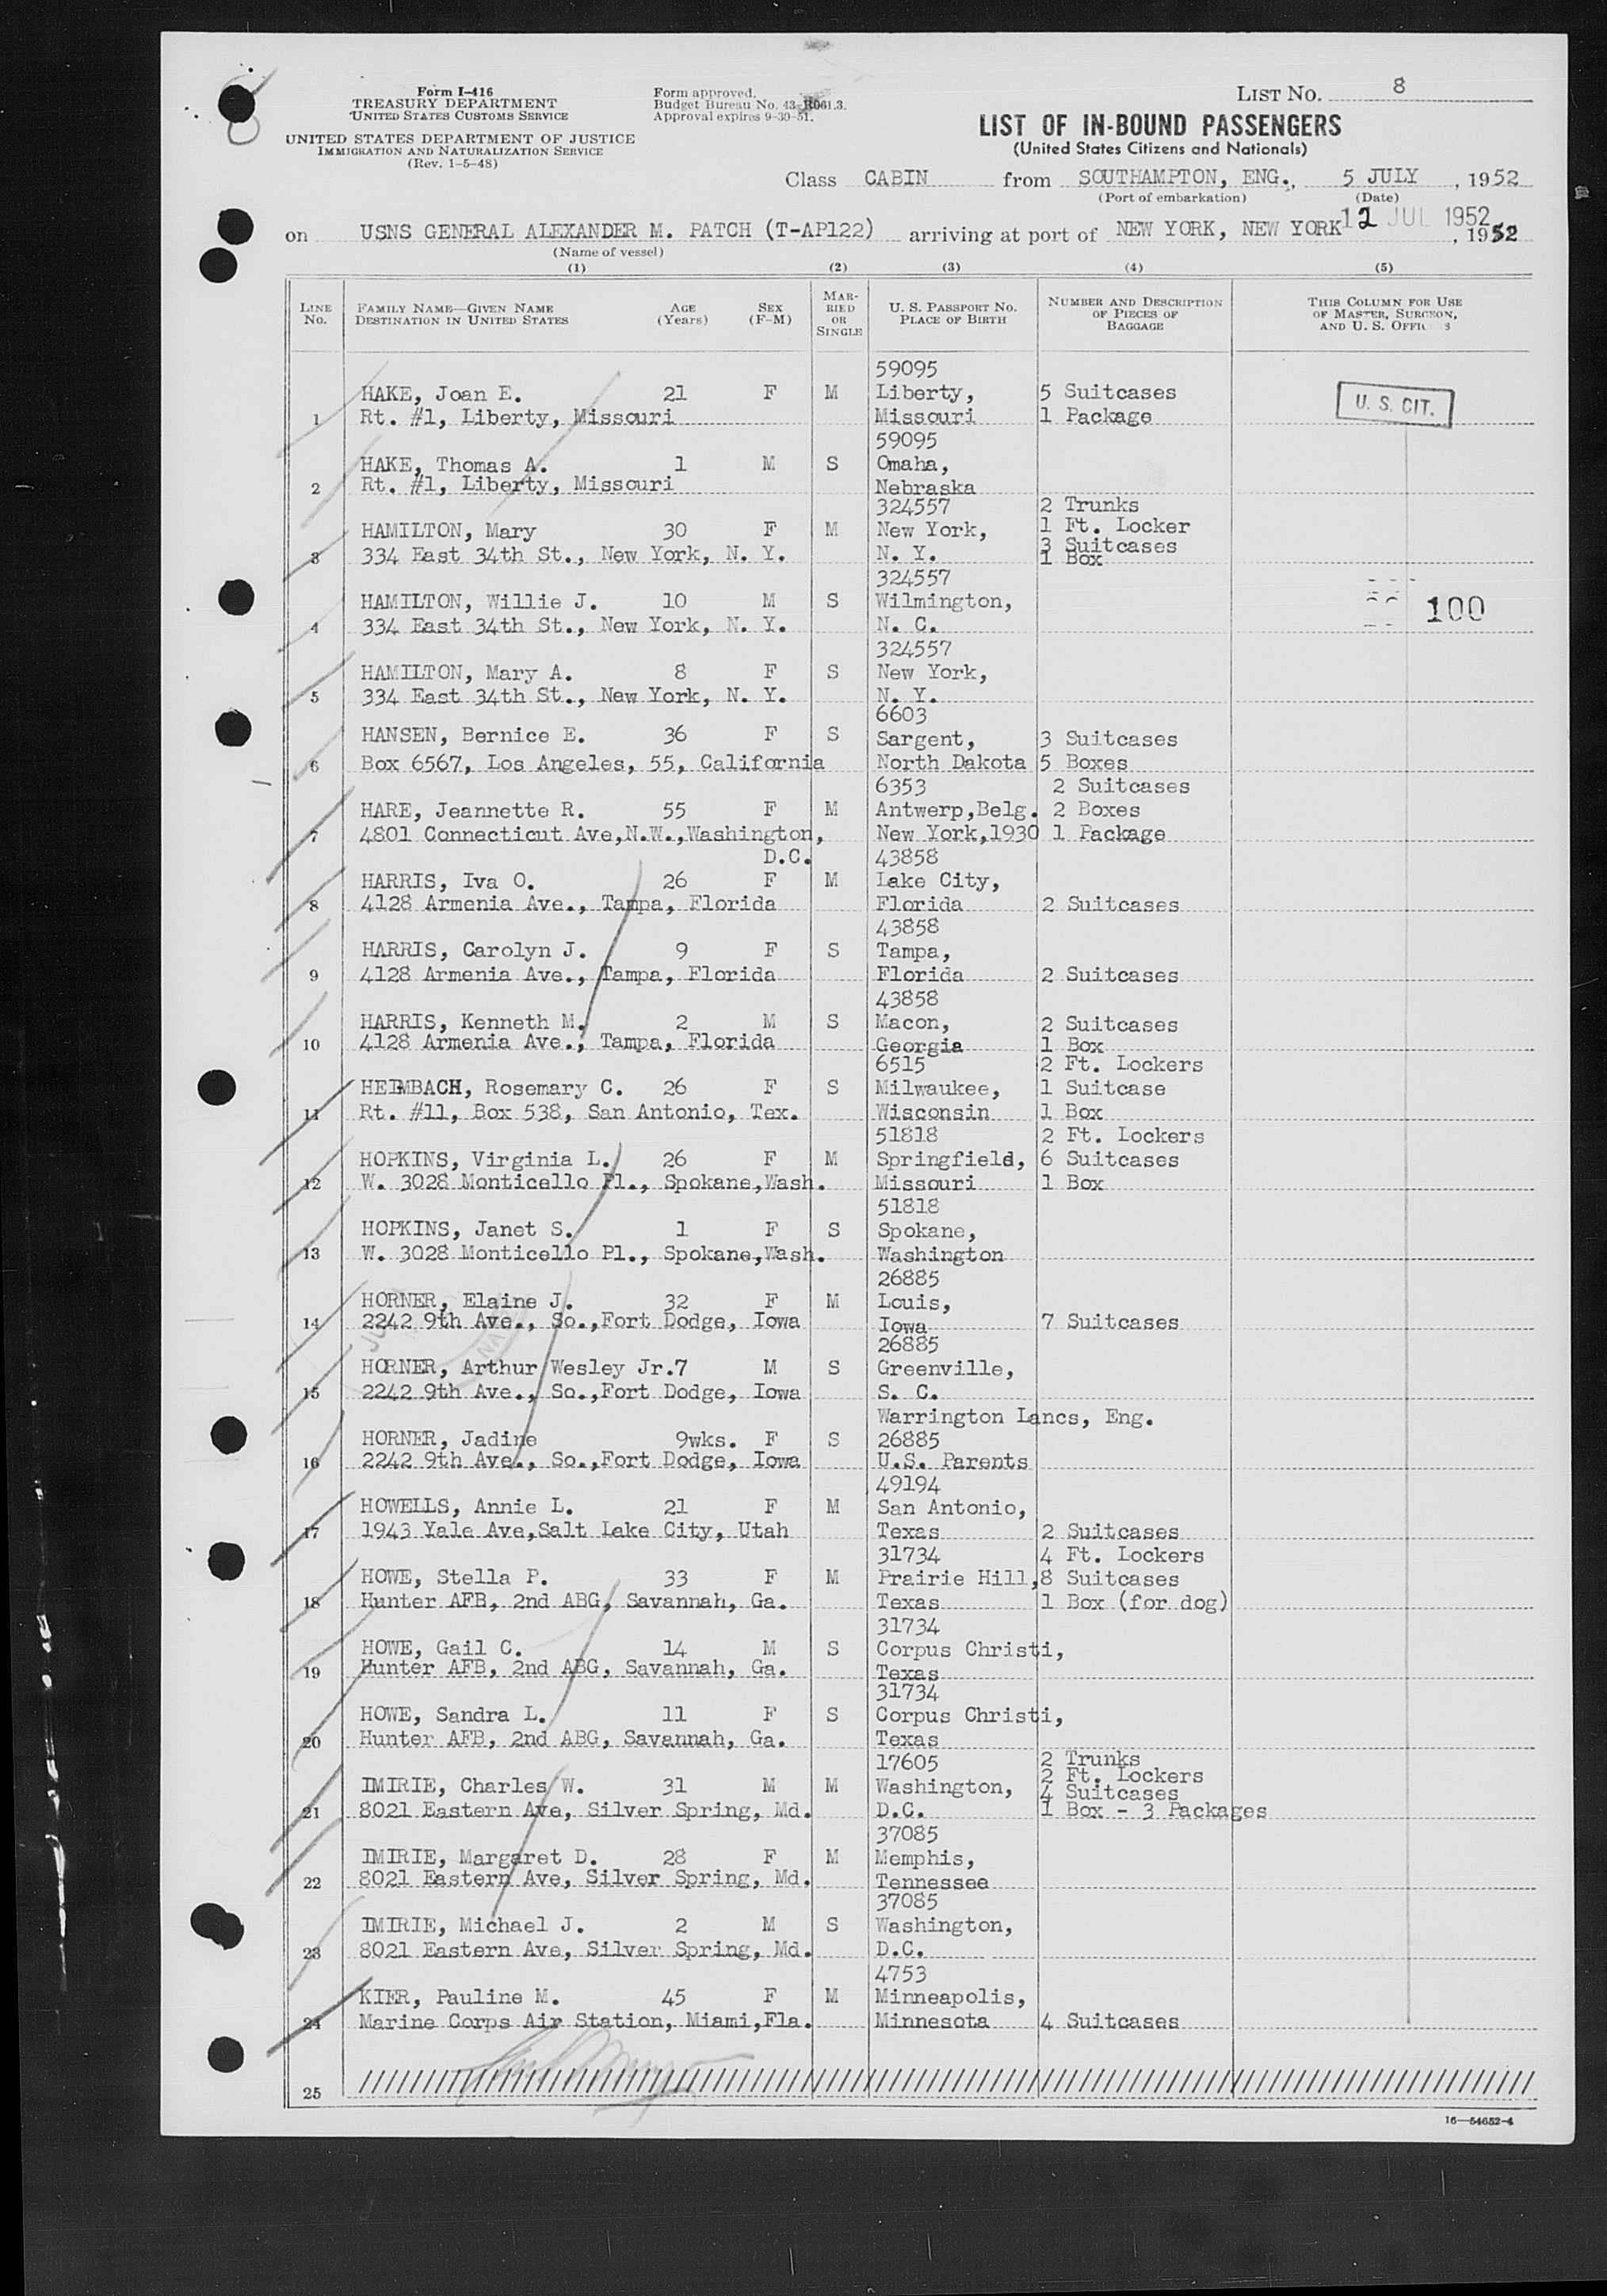 Form I-416
TREASURY DEPARTMENT
UNITED STATES CUSTOMS SERVICE
UNITED STATES DEPARTMENT OF JUSTICE
IMMIGRATION AND NATURALIZATION SERVICE
(Rev. 1-5-48)
Form approved.
Budget Bureau No. 43-R061.3.
Approval expires 9-30-51.
LIST No. 8
LIST OF IN-BOUND PASSENGERS
(United States Citizens and Nationals)
Class CABIN from SOUTHAMPTON, ENG., 5 JULY, 1952
(Port of embarkation) (Date)
on USNS GENERAL ALEXANDER M. PATCH (T-AP122) arriving at port of NEW YORK, NEW YORK 12 JUL 1952, 1952
(Name of vessel)
(1) (2) (3) (4) (5)
LINE No. FAMILY NAME—GIVEN NAME DESTINATION IN UNITED STATES AGE (Years) SEX (F-M) MARRIED OR SINGLE U. S. PASSPORT No. PLACE OF BIRTH NUMBER AND DESCRIPTION OF PIECES OF BAGGAGE THIS COLUMN FOR USE OF MASTER, SURGEON, AND U. S. OFFI S
59095
HAKE, Joan E. 21 F M Liberty, 5 Suitcases U. S. CIT.
1 Rt. #1, Liberty, Missouri Missouri 1 Package
59095
HAKE, Thomas A. 1 M S Omaha,
2 Rt. #1, Liberty, Missouri Nebraska
324557 2 Trunks
HAMILTON, Mary 30 F M New York, 1 Ft. Locker
3 Suitcases
3 334 East 34th St., New York, N. Y. N. Y. 1 Box
324557
HAMILTON, Willie J. 10 M S Wilmington, 100
4 334 East 34th St., New York, N. Y. N. C.
324557
HAMILTON, Mary A. 8 F S New York,
5 334 East 34th St., New York, N. Y. N. Y.
6603
HANSEN, Bernice E. 36 F S Sargent, 3 Suitcases
6 Box 6567, Los Angeles, 55, California North Dakota 5 Boxes
6353 2 Suitcases
HARE, Jeannette R. 55 F M Antwerp,Belg. 2 Boxes
7 4801 Connecticut Ave,N.W.,Washington, New York,1930 1 Package
D.C. 43858
HARRIS, Iva O. 26 F M Lake City,
8 4128 Armenia Ave., Tampa, Florida Florida 2 Suitcases
43858
HARRIS, Carolyn J. 9 F S Tampa,
9 4128 Armenia Ave., Tampa, Florida Florida 2 Suitcases
43858
HARRIS, Kenneth M. 2 M S Macon, 2 Suitcases
10 4128 Armenia Ave., Tampa, Florida Georgia 1 Box
6515 2 Ft. Lockers
HEIMBACH, Rosemary C. 26 F S Milwaukee, 1 Suitcase
11 Rt. #11, Box 538, San Antonio, Tex. Wisconsin 1 Box
51818 2 Ft. Lockers
HOPKINS, Virginia L. 26 F M Springfield, 6 Suitcases
12 W. 3028 Monticello Pl., Spokane,Wash. Missouri 1 Box
51818
HOPKINS, Janet S. 1 F S Spokane,
13 W. 3028 Monticello Pl., Spokane,Wash. Washington
26885
HORNER, Elaine J. 32 F M Louis,
14 2242 9th Ave., So.,Fort Dodge, Iowa Iowa 7 Suitcases
26885
HORNER, Arthur Wesley Jr.7 M S Greenville,
15 2242 9th Ave., So.,Fort Dodge, Iowa S. C.
Warrington Lancs, Eng.
HORNER, Jadine 9wks. F S 26885
16 2242 9th Ave., So.,Fort Dodge, Iowa U.S. Parents
49194
HOWELLS, Annie L. 21 F M San Antonio,
17 1943 Yale Ave,Salt Lake City, Utah Texas 2 Suitcases
31734 4 Ft. Lockers
HOWE, Stella P. 33 F M Prairie Hill, 8 Suitcases
18 Hunter AFB, 2nd ABG, Savannah, Ga. Texas 1 Box (for dog)
31734
HOWE, Gail C. 14 M S Corpus Christi,
19 Hunter AFB, 2nd ABG, Savannah, Ga. Texas
31734
HOWE, Sandra L. 11 F S Corpus Christi,
20 Hunter AFB, 2nd ABG, Savannah, Ga. Texas
17605 2 Trunks
2 Ft. Lockers
IMIRIE, Charles W. 31 M M Washington, 4 Suitcases
21 8021 Eastern Ave, Silver Spring, Md. D.C. 1 Box - 3 Packages
37085
IMIRIE, Margaret D. 28 F M Memphis,
22 8021 Eastern Ave, Silver Spring, Md. Tennessee
37085
IMIRIE, Michael J. 2 M S Washington,
23 8021 Eastern Ave, Silver Spring, Md. D.C.
4753
KIER, Pauline M. 45 F M Minneapolis,
24 Marine Corps Air Station, Miami,Fla. Minnesota 4 Suitcases
25
16—54652-4